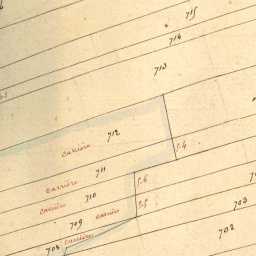 715
714
713
712
carrière
711
carrière
710
carrière
709
carrière
708
carrière
703
702